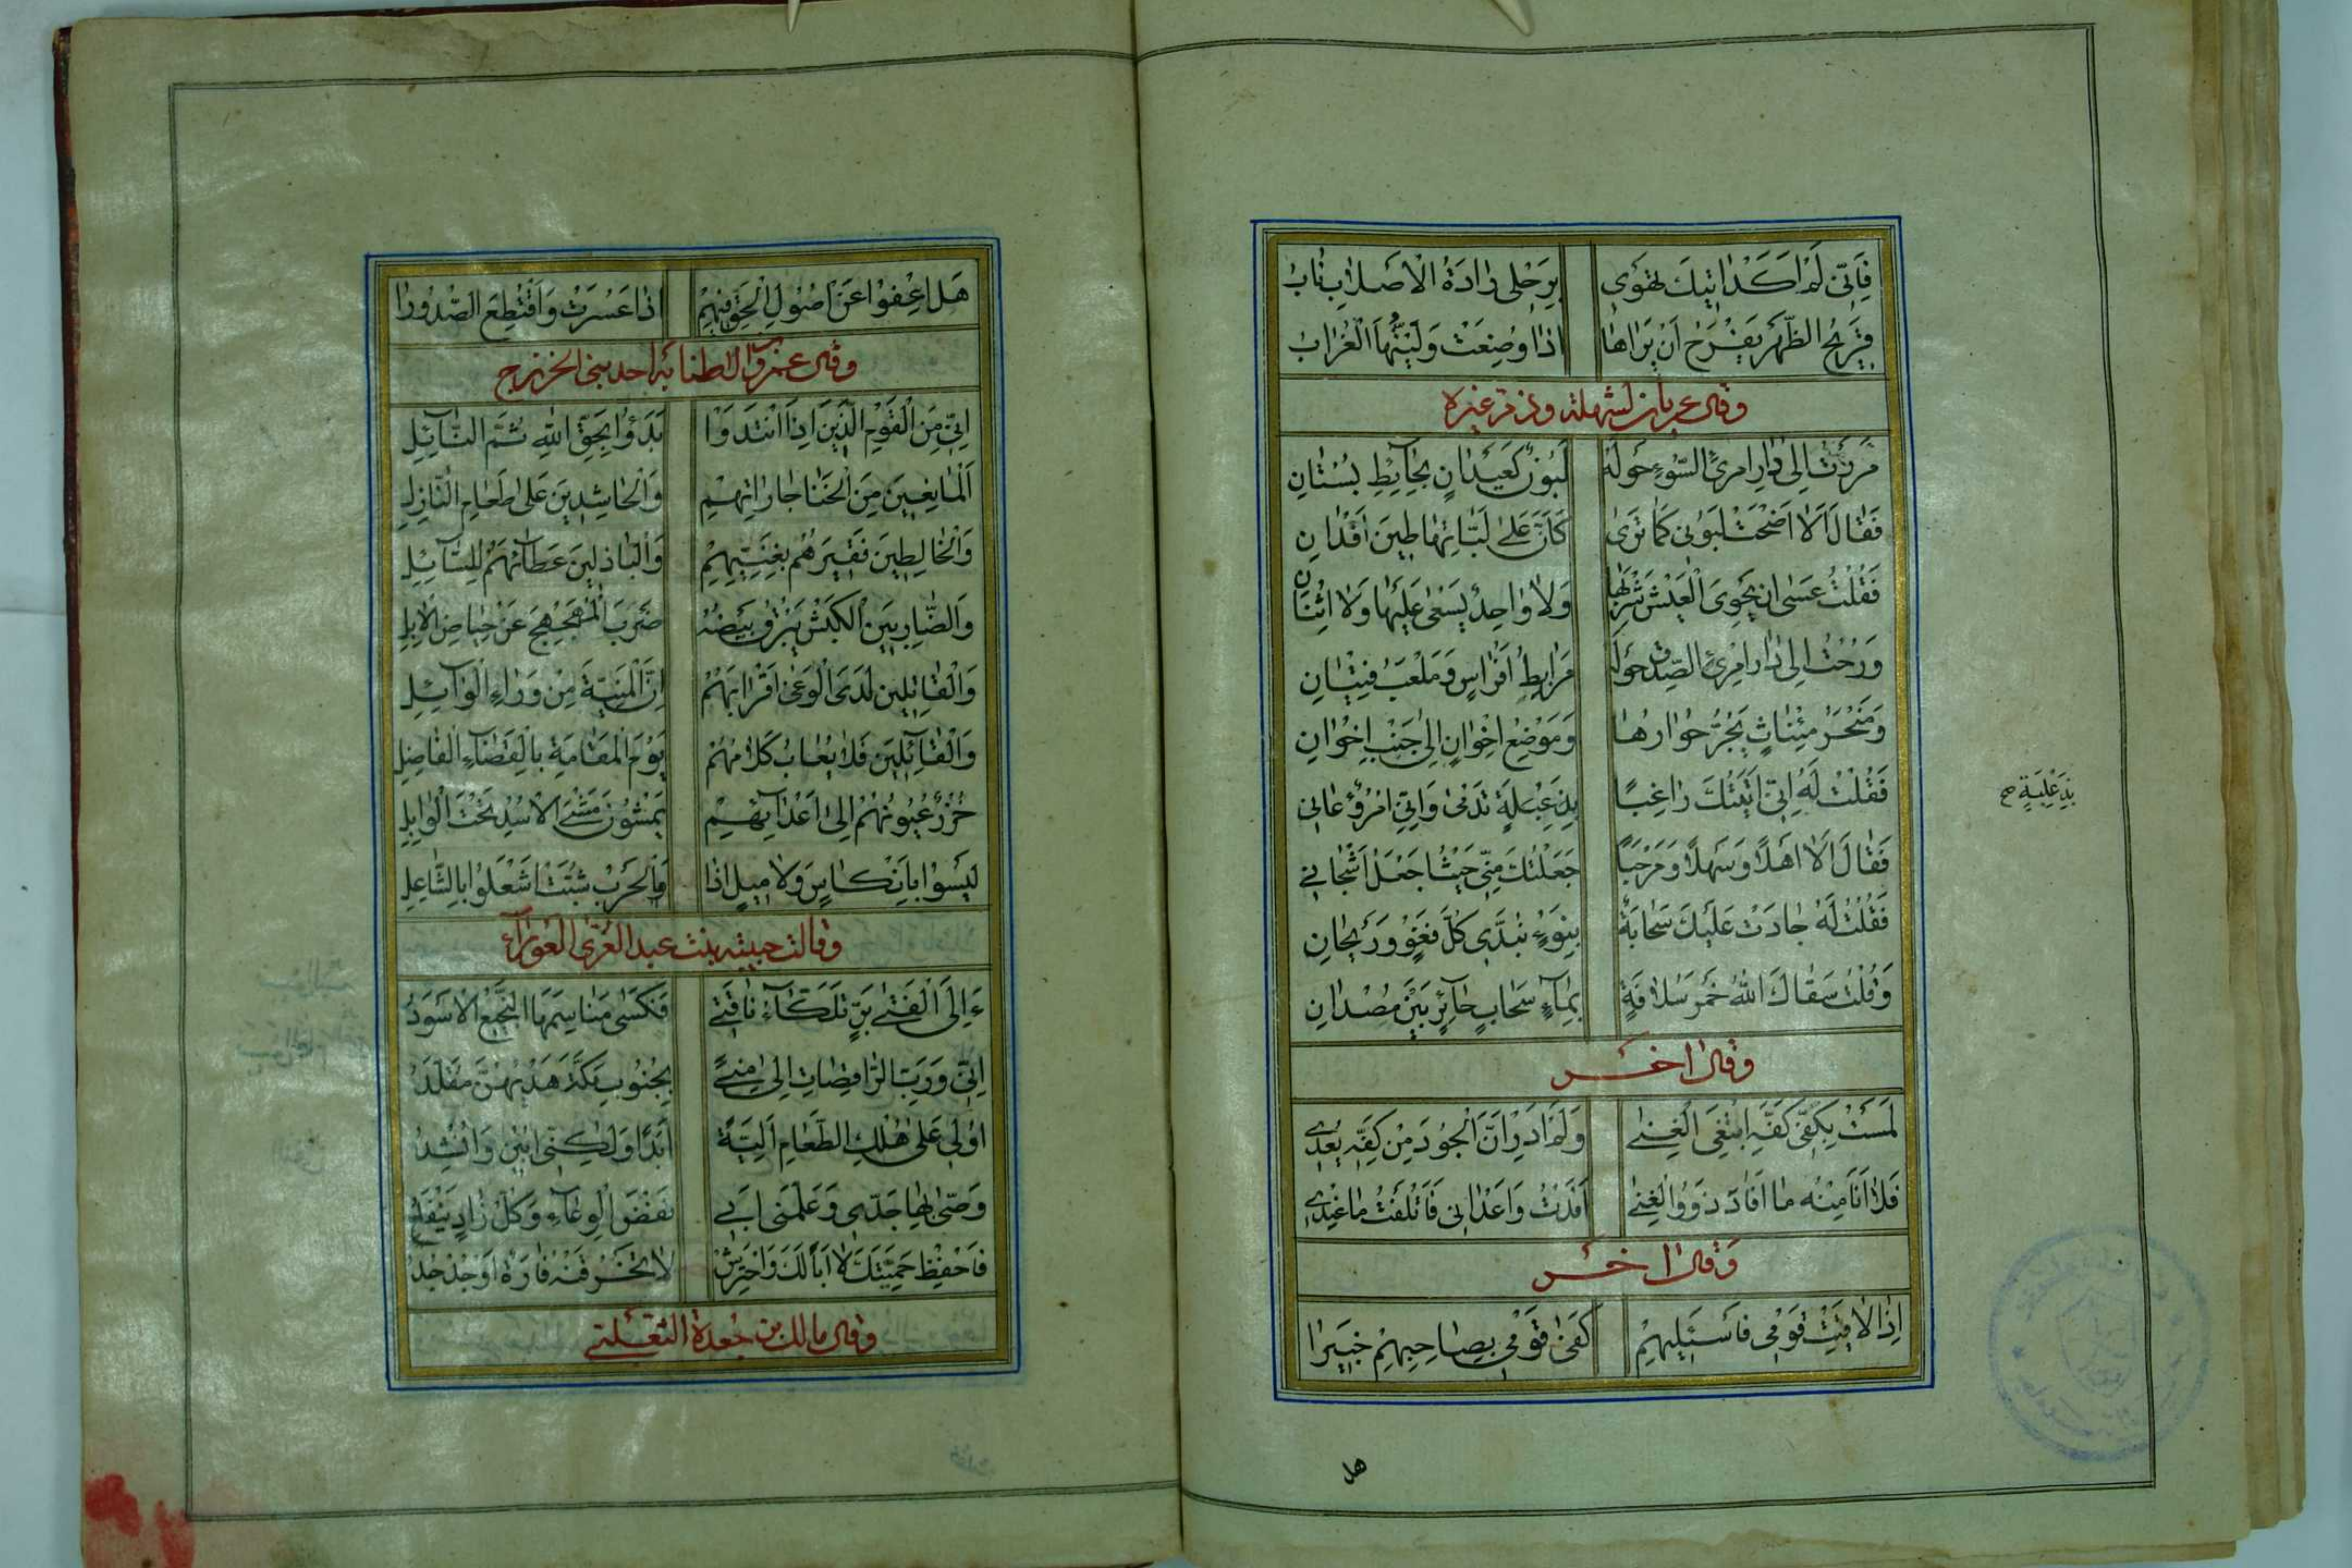 فَاِنّی لَمْ اَكَدْ اٰتِیكَ تَهْوَی بِرَحْلِی رٰادَةُ الْاَصْلاٰبِ نٰابُ
قَرِیحُ الظَّهْرِ یَفْرَحُ اَنْ یَرٰاهٰا اِذٰا وُضِعَتْ وَلِیَّتُهَا الْغُرٰابُ
وقال عریان لسهلة وذم غیره
مَرَرْتُ اِلٰی دٰارِ امْرِئِ السَّوْءِ حَوْلَهُ لَبُونٌ كَعِیدٰانٍ بِحٰآئِطِ بُسْتٰانِ
فَقٰالَ اَلاٰ اَضْحَتْ لَبُونِی كَمٰا تَرٰی كَاَنَّ عَلٰی لَبّٰاتِهٰا طِینَ اَفْدٰانِ
فَقُلْتُ عَسٰی اَنْ یَحْوِیَ الْعَیْشُ شَرْبَهٰا وَلاٰ وٰاحِدٌ یَسْعٰی عَلَیْهٰا وَلاٰ اثْنٰانِ
وَرُحْتُ اِلٰی دٰارِ امْرِئِ الصِّدْقِ حَوْلَهُ مَرٰابِطُ اَفْرٰاسٍ وَمَلْعَبُ فِتْیٰانِ
وَمَنْحَرُ مِئْنٰاثٍ یَجُرُّ حُوٰارُهٰا وَمَوْضِعُ اِخْوٰانٍ اِلٰی جَنْبِ اِخْوٰانِ
فَقُلْتُ لَهُ اِنّی اَتَیْتُكَ رٰاغِبًا بِذِعْبِلَةٍ تَدْمٰی وَاِنّی امْرُؤٌ عٰانِی
بِذِعْلِبَةٍ صح
فَقٰالَ اَلاٰ اَهْلاً وَسَهْلاً وَمَرْحَبًا جَعَلْتُكَ مِنّی حَیْثُ اَجْعَلُ اَشْجٰانِی
فَقُلْتُ لَهُ جٰادَتْ عَلَیْكَ سَحٰابَةٌ بِنَوْءٍ یُنَدّی كُلَّ فَغْوٍ وَرَیْحٰانِ
وَقُلْتُ سَقٰاكَ اللّٰهُ خَمْرَ سُلاٰفَةٍ بِمٰآءِ سَحٰابٍ حٰآئِرٍ بَیْنَ مُصْدٰانِ
وقال اخر
لَمَسْتُ بِكَفّی كَفَّهُ اَبْتَغِی الْغِنٰی وَلَمْ اَدْرِ اَنَّ الْجُودَ مِنْ كَفِّهِ یُعْدِی
فَلاٰ اَنَا مِنْهُ مٰا اَفٰادَ ذَوُو الْغِنٰی اَفَدْتُ وَاَعْدٰانِی فَاَتْلَفْتُ مٰا عِنْدِی
وقال اخر
اِذٰا لاٰقَیْتَ قَوْمِی فَاسْئَلِیهِمْ كَفٰی قَوْمِی بِصٰاحِبِهِمْ خَبِیرٰا
هل
هَلْ اَعْفُوا عَنْ اُصُولِ الْحَقِّ فِیهِمْ اِذٰا عَسُرَتْ وَاَقْتَطِعُ الصُّدُورٰا
وقال عمرو الاطنابة احد بنی الخزرج
اِنّی مِنَ الْقَوْمِ الَّذِینَ اِذَا انْتَدَوْا بَدَؤُا بِحَقِّ اللّٰهِ ثُمَّ النّٰآئِلِ
اَلْمٰانِعِینَ مِنَ الْخَنٰا جٰارٰاتِهِمْ وَالْحٰاشِدِینَ عَلٰی طَعٰامِ النّٰازِلِ
وَالْخٰالِطِینَ فَقِیرَهُمْ بِغَنِیِّهِمْ وَالْبٰاذِلِینَ عَطٰآئَهُمْ لِلسّٰآئِلِ
وَالضّٰارِبِینَ الْكَبْشَ یَبْرُقُ بَیْضُهُ ضَرْبَ الْمُهَجْهِجِ عَنْ حِیٰاضِ الْاِبِلِ
وَالْقٰاتِلِینَ لَدَی الْوَغٰی اَقْرٰانَهُمْ اِنَّ الْمَنِیَّةَ مِنْ وَرٰاءِ الْوٰآئِلِ
وَالْقٰآئِلِینَ فَلاٰ یُعٰابُ كَلاٰمُهُمْ یَوْمَ الْمَقٰامَةِ بِالْقَضٰآءِ الْفٰاصِلِ
خُزْرٌ عُیُونُهُمْ اِلٰی اَعْدٰآئِهِمْ یَمْشُونَ مَشْیَ الْاُسْدِ تَحْتَ الْوٰابِلِ
لَیْسُوا بِاَنْكٰاسٍ وَلاٰ مِیلٍ اِذٰا مَا الْحَرْبُ شُبَّتْ اَشْعَلُوا بِالشّٰاعِلِ
وقالت حبیبه بنت عبد العزی العوراء
ءَاِلَی الْفَتٰی بَرٍّ تَلَكّٰاءُ نٰاقَتِی فَكَسٰی مَنٰاسِمَهَا النَّجِیعُ الْاَسْوَدُ
اِنّی وَرَبِّ الرّٰاقِصٰاتِ اِلٰی مِنًی بِجُنُوبِ مَكَّةَ هَدْیُهُنَّ مُقَلَّدُ
اُولِی عَلٰی هُلْكِ الطَّعٰامِ اَلِیَّةً اَبَدًا وَلٰكِنّی اُبِینُ وَاُنْشِدُ
وَصّٰی بِهٰا جَدّی وَعَلَّمَنِی اَبِی نَفْضَ الْوِعٰآءِ وَكُلُّ زٰادٍ یَنْفَدُ
فَاحْفَظْ حَمِیتَكَ لاٰ اَبًا لَكَ وَاحْتَرِسْ لاٰ تَخْرِقَنْهُ فٰارَةٌ اَوْ جُدْجُدُ
وقال مالك بن جعدة الثعلبی